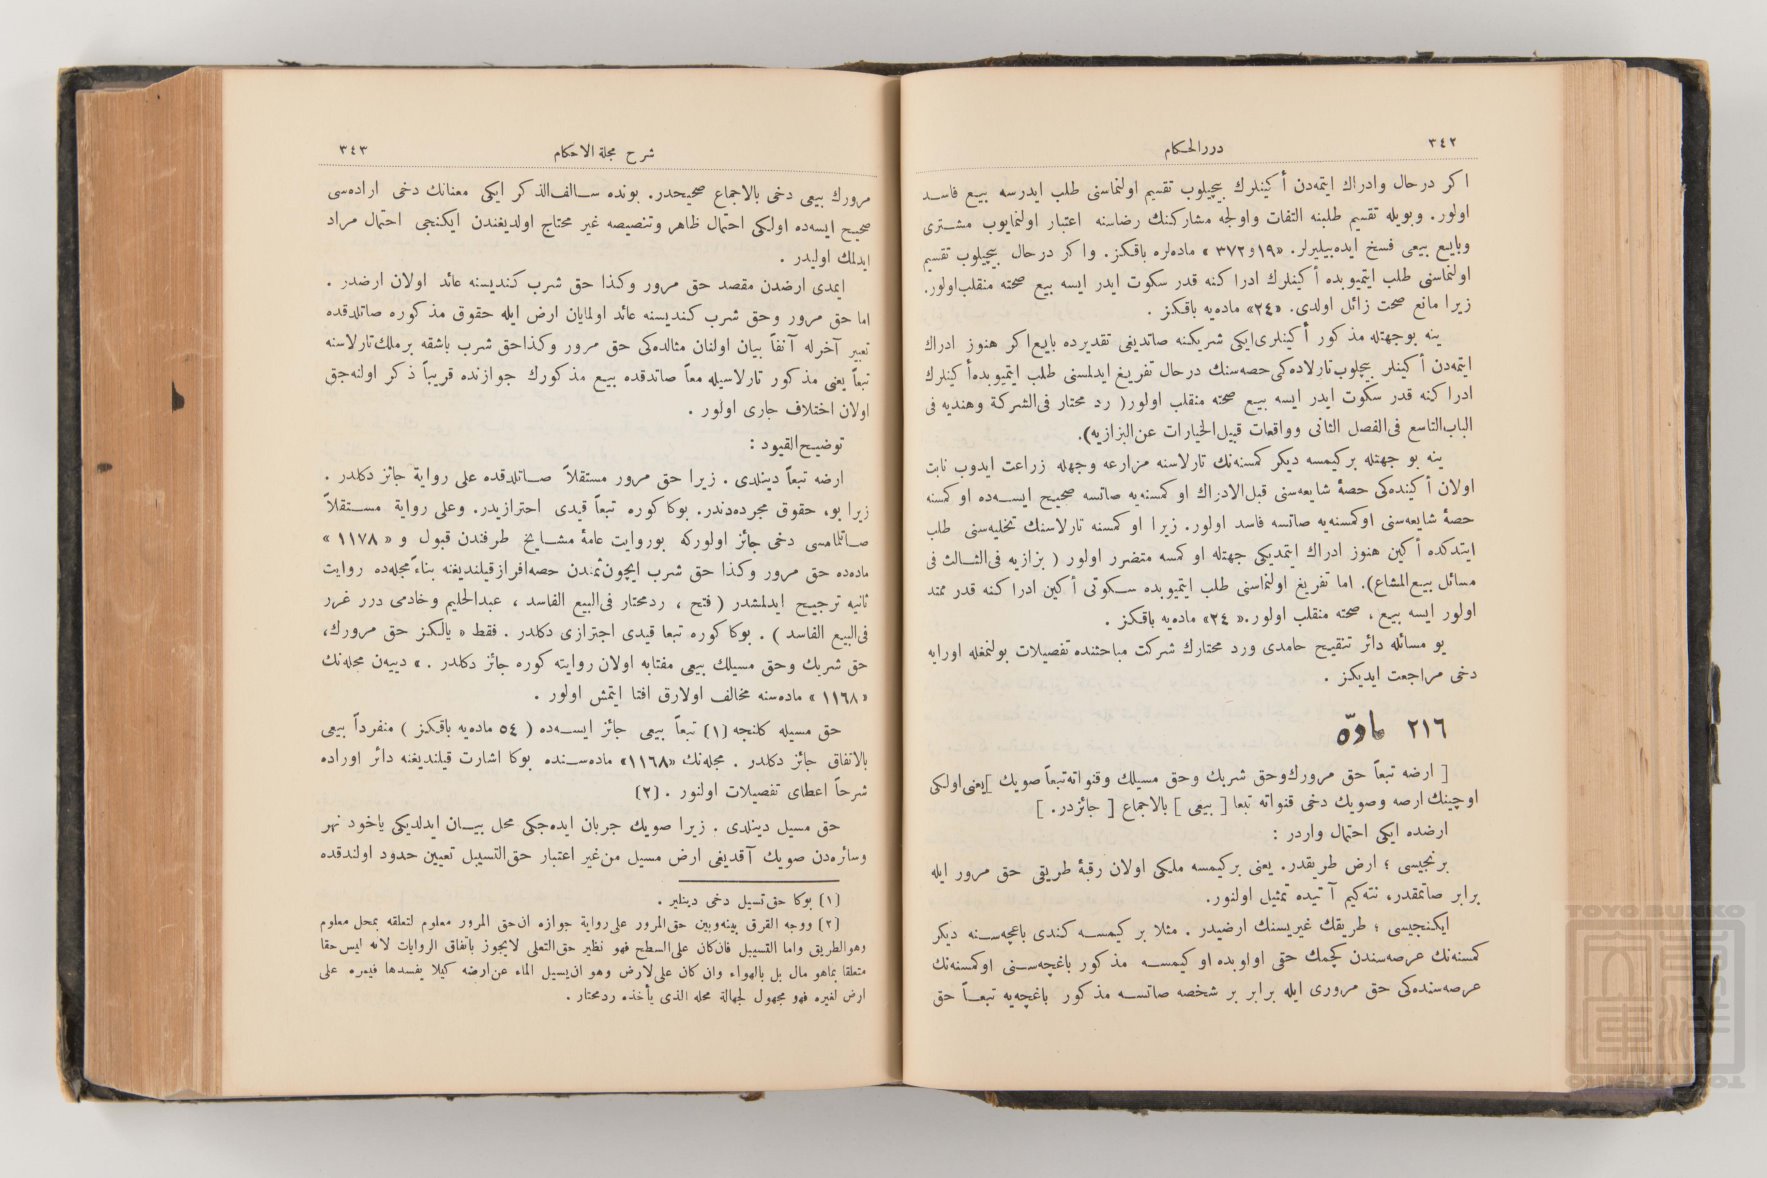 ٣٤٢
درر الحكام
اكر درحال وادراك ايتمه‌دن أكينلرك بيچيلوب تقسيم اولنماسنى طلب ايدرسه بيع فاسد
اولور. وبويله تقسيم طلبنه التفات واولجه مشاركنك رضاسنه اعتبار اولنمايوب مشترى
وبايع بيعى فسخ ايده‌بيليرلر. «١٩و٣٧٢» ماده‌لره باقكز. واكر درحال بيچيلوب تقسيم
اولنماسنى طلب ايتميوبده أكينلرك ادراكنه قدر سكوت ايدر ايسه بيع صحته منقلب‌اولور.
زيرا مانع صحت زائل اولدى. «٢٤» ماده‌يه باقكز .
ينه بوجهتله مذكور أكينلرى‌ايكى شريكنه صاتديغى تقديرده بايع‌اكر هنوز ادراك
ايتمه‌دن أكينلر بيچلوب‌تارلاده‌كى‌حصه‌سنك درحال تفريغ ايدلمسنى طلب ايتميوبده‌أكينلرك
ادراكنه قدر سكوت ايدر ايسه بيع صحته منقلب اولور( رد محتار فى‌الشركة وهنديه فى
الباب‌التاسع فى‌الفصل الثانى وواقعات قبيل‌الخيارات عن‌البزازيه).
ينه بو جهتله بركيمسه ديكر كمسنه‌نك تارلاسنه مزارعه وجهله زراعت ايدوب نابت
اولان أكينده‌كى حصهٔ شايعه‌سنى قبل‌الادراك اوكمسنه‌يه صاتسه صحيح ايسه‌ده اوكمسنه
حصهٔ شايعه‌سنى اوكمسنه‌يه صاتسه فاسد اولور. زيرا اوكمسنه تارلاسنك تخليه‌سنى طلب
ايتدكده أكين هنوز ادراك ايتمديكى جهتله اوكمسه متضرر اولور ( بزازيه فى‌الثالث فى
مسائل بيع‌المشاع). اما تفريغ اولنماسنى طلب ايتميوبده سكوتى أكين ادراكنه قدر ممتد
اولور ايسه بيع ، صحته منقلب اولور.« ٢٤» ماده‌يه باقكز .
بو مسائله دائر تنقيح حامدى ورد محتارك شركت مباحثنده تفصيلات بولنمغله اورايه
دخى مراجعت ايديكز .
٢١٦ مادّه
[ ارضه تبعاً حق مرورك‌وحق شربك وحق مسيلك وقنواته‌تبعاً صويك ]يعنى‌اولكى
اوچينك ارضه وصويك دخى قنواته تبعا [ بيعى ] بالاجماع [ جائزدر. ]
ارضده ايكى احتمال واردر :
برنجيسى ؛ ارض طريقدر. يعنى بركيمسه ملكى اولان رقبهٔ طريقى حق مرور ايله
برابر صاتمقدر، نته‌كيم آتيده تمثيل اولنور.
ايكنجيسى ؛ طريقك غيريسنك ارضيدر . مثلا بر كيمسه كندى باغچه‌سنه ديكر
كمسنه‌نك عرصه‌سندن كچمك حقى اولوبده او كيمسه مذكور باغچه‌سنى اوكمسنه‌نك
عرصه‌سنده‌كى حق مرورى ايله برابر بر شخصه صاتسه مذكور باغچه‌يه تبعاً حق
شرح مجلة الاحكام
٣٤٣
مرورك بيعى دخى بالاجماع صحيحدر. بونده سالف‌الذكر ايكى معنانك دخى اراده‌سى
صحيح ايسه‌ده اولكى احتمال ظاهر وتنصيصه غير محتاج اولديغندن ايكنجى احتمال مراد
ايدلمك اوليدر .
ايمدى ارضدن مقصد حق مرور وكذا حق شرب كنديسنه عائد اولان ارضدر .
اما حق مرور وحق شرب كنديسنه عائد اولمايان ارض ايله حقوق مذكوره صاتلدقده
تعبير آخرله آنفاً بيان اولنان مثالده‌كى حق مرور وكذاحق شرب باشقه برملك‌تارلاسنه
تبعاً يعنى مذكور تارلاسيله معاً صاتدقده بيع مذكورك جوازنده قريباً ذكر اولنه‌جق
اولان اختلاف جارى اولور .
توضيح‌القيود :
ارضه تبعاً دينلدى . زيرا حق مرور مستقلاً صاتلدقده على رواية جائز دكلدر .
زيرا بو، حقوق مجرده‌دندر. بوكا كوره تبعاً قيدى احترازيدر. وعلى رواية مستقلاً
صاتلمامسى دخى جائز اولوركه بوروايت عامهٔ مشايخ طرفندن قبول و « ١١٧٨ »
ماده‌ده حق مرور وكذا حق شرب ايچون‌ثمندن حصه‌افرازقيلنديغنه بناءً‌مجله‌ده روايت
ثانيه ترجيح ايدلمشدر ( فتح ، ردمحتار فى‌البيع الفاسد ، عبدالحليم وخادمى درر غرر
فى‌البيع الفاسد ) . بوكا كوره تبعا قيدى احترازى دكلدر . فقط « يالكز حق مرورك،
حق شربك وحق مسيلك بيعى مفتابه اولان روايته كوره جائز دكلدر . » دييه‌ن مجله‌نك
« ١١٦٨ » ماده‌سنه مخالف اولارق افتا ايتمش اولور .
حق مسيله كلنجه (١) تبعاً بيعى جائز ايسه‌ده ( ٥٤ ماده‌يه باقكز ) منفرداً بيعى
بالاتفاق جائز دكلدر . مجله‌نك «١١٦٨» ماده‌سنده بوكا اشارت قيلنديغنه دائر اوراده
شرحاً اعطاى تفصيلات اولنور . (٢)
حق مسيل دينلدى . زيرا صويك جريان ايده‌جكى محل بيان ايدلديكى ياخود نهر
وسائره‌دن صويك آقديغى ارض مسيل من‌غير اعتبار حق‌التسييل تعيين حدود اولندقده
(١) بوكا حق‌تسيل دخى دينلير .
(٢) ووجه الفرق بينه‌وبين حق‌المرور على‌رواية جوازه ان‌حق المرور معلوم لتعلقه بمحل معلوم
وهوالطريق واما التسييل فان‌كان على‌السطح فهو نظير حق‌التعلى لايجوز باتفاق الروايات لانه ليس‌حقا
متعلقا بماهو مال بل بالهواء وان كان على‌لارض وهو ان‌يسيل الماء عن‌ارضه كيلا يفسدها فيمره على
ارض لغيره فهو مجهول لجهالة محله الذى يأخذه ردمحتار .
TOYO BUNKO